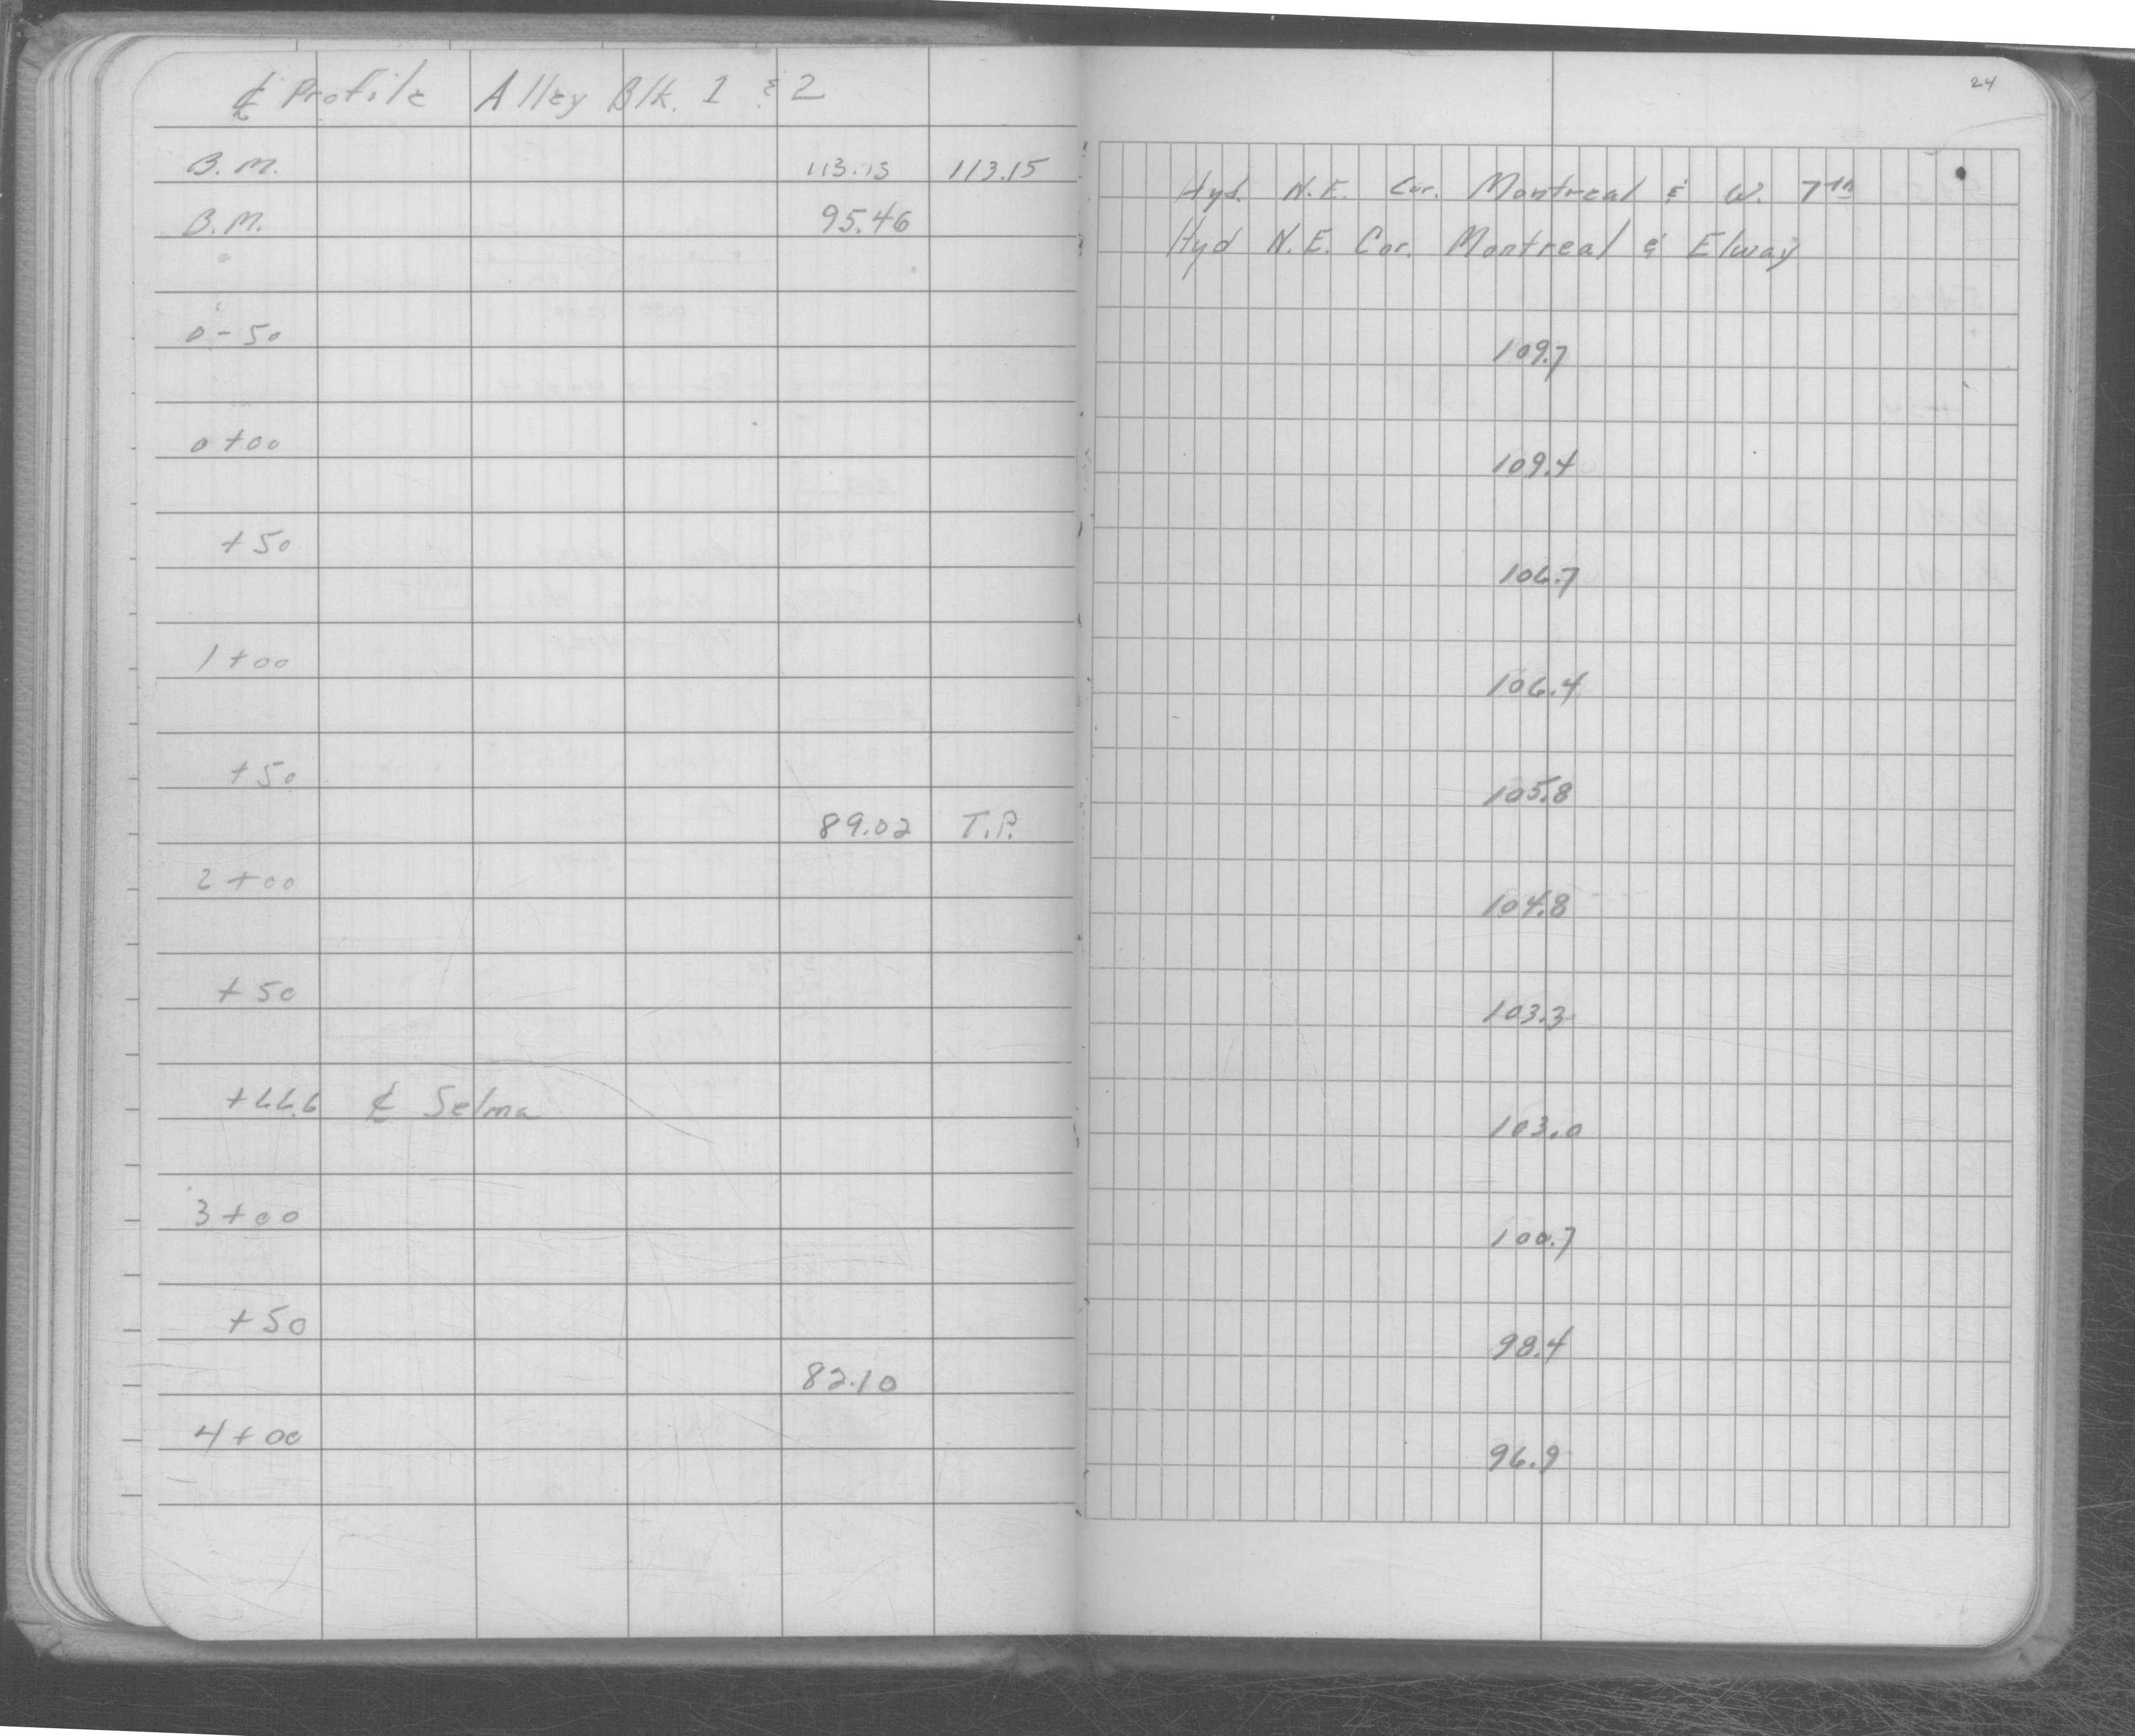 ℄ Profile Alley Blk. 1 & 2
24
B.M. 113.13 113.15 Hyd. N.E. Cor. Montreal & W. 7th
B.M. 95.46 Hyd N.E. Cor. Montreal & Elway
0-50 109.7
0+00 109.4
+50 106.7
1+00 106.4
+50 105.8
89.02 T.P.
2+00 104.8
+50 103.3
+66.6 ℄ Selma 103.0
3+00 100.7
+50 98.4
82.10
4+00 96.9